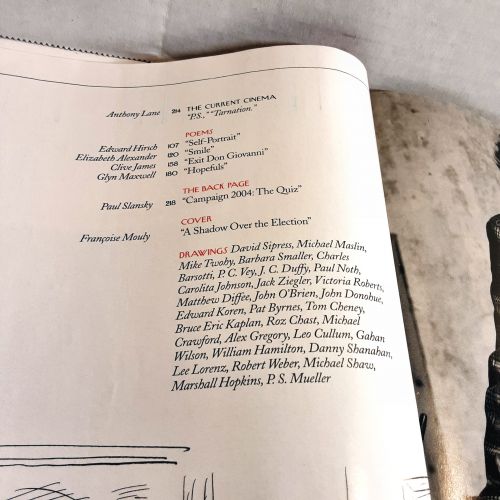 Anthony Lane 214 THE CURRENT CINEMA
"P.S.," "Tarnation."
POEMS
Edward Hirsch 107 "Self-Portrait"
Elizabeth Alexander 120 "Smile"
Clive James 158 "Exit Don Giovanni"
Glyn Maxwell 180 "Hopefuls"
THE BACK PAGE
Paul Slansky 218 "Campaign 2004: The Quiz"
COVER
Françoise Mouly "A Shadow Over the Election"
DRAWINGS David Sipress, Michael Maslin,
Mike Twohy, Barbara Smaller, Charles
Barsotti, P. C. Vey, J. C. Duffy, Paul Noth,
Carolita Johnson, Jack Ziegler, Victoria Roberts,
Matthew Diffee, John O'Brien, John Donohue,
Edward Koren, Pat Byrnes, Tom Cheney,
Bruce Eric Kaplan, Roz Chast, Michael
Crawford, Alex Gregory, Leo Cullum, Gahan
Wilson, William Hamilton, Danny Shanahan,
Lee Lorenz, Robert Weber, Michael Shaw,
Marshall Hopkins, P. S. Mueller